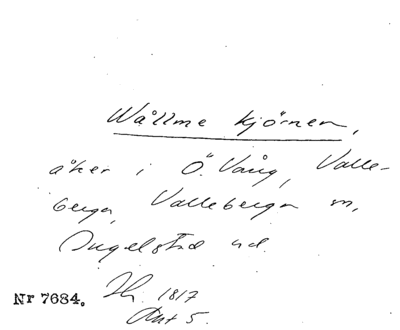 Wållme kjörnen,
åker i Ö. Vång, Valle-
berga, Valleberga sn,
Ingelstad hd.
Nr 7684. Lh. 1817
Akt 5.